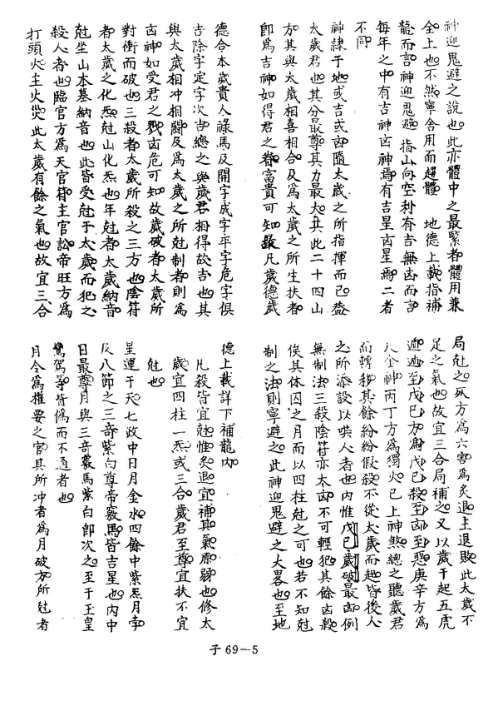 神迎鬼避之說也此亦體中之最緊者體用兼
全上也不然寧舍用而趨體　地德上載指補
龍而言神迎鬼避指山向空利有吉無凶而言
每年之中有吉神凶神焉有吉星凶星焉二者
不同
神隸于地或吉或凶隨太歲之所指揮而已蓋
太歲君也其分最尊其力最大其此二十四山
方其與太歲相喜相合及為太歲之所生扶者
即為吉神如得君之眷富貴可知最凡歲德歲
德合本歲貴人祿馬及開字成字平字危字俱
吉除字定字次吉總之與歲君相得故吉也其
與太歲相冲相關及為太歲之所尅制者則為
凶神如受君之戮凶危可知故歲破者太歲所
對衝而破也三殺者太歲所殺之三方也陰符
者太歲之化炁尅山化炁也年尅者太歲納音
尅坐山本墓納音也此皆受尅于太歲而犯之
殺人者也臨官方為天官符主官訟帝旺方為
打頭火主火災此太歲有餘之氣也故宜三合
局尅之死方為六害為炙退主退敗此太歲不
足之氣也故宜三合局補之又以歲干起五虎
遁遁至戊己方為戊己殺至凶至惡庚辛方為
天金神丙丁方為獨火已上神煞總之聽歲君
而轉移其餘紛紛假殺不從太歲而起皆後人
之所添設以唬人者也內惟戊己歲破最凶例
無制法三殺陰符亦太凶不可輕犯其餘凶殺
俟其休囚之月而以四柱尅之可也若不知尅
制之法則寧避之此神迎鬼避之大畧也至地
德上載詳下補龍內
凡殺皆宜尅惟炙退宜補其氣也修太
歲宜四柱一炁或三合歲君至尊宜扶不宜
尅也
星運于天七政中日月金水四餘中紫炁月孛
及八節之三奇紫白尊帝竅馬皆吉星也內中
日最尊月與三奇竅馬紫白即次之至于玉皇
鸞駕等皆偽而不通者也
月令為權要之官其所冲者為月破方所尅者
子 69－5